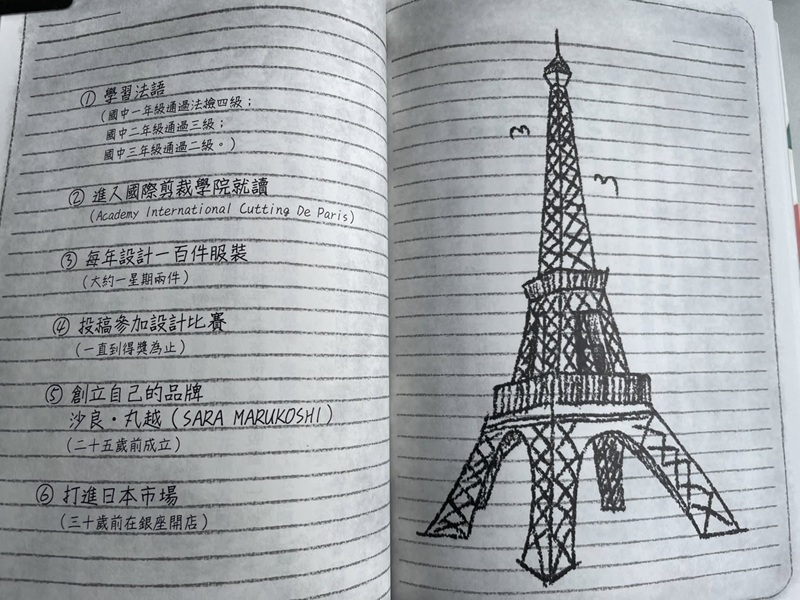 ① 學習法語
(國中一年級通過法檢四級；
國中二年級通過三級；
國中三年級通過二級。)
② 進入國際剪裁學院就讀
(Academy International Cutting De Paris)
③ 每年設計一百件服裝
(大約一星期兩件)
④ 投稿參加設計比賽
(一直到得獎為止)
⑤ 創立自己的品牌
沙良・丸越 (SARA MARUKOSHI)
(二十五歲前成立)
⑥ 打進日本市場
(三十歲前在銀座開店)